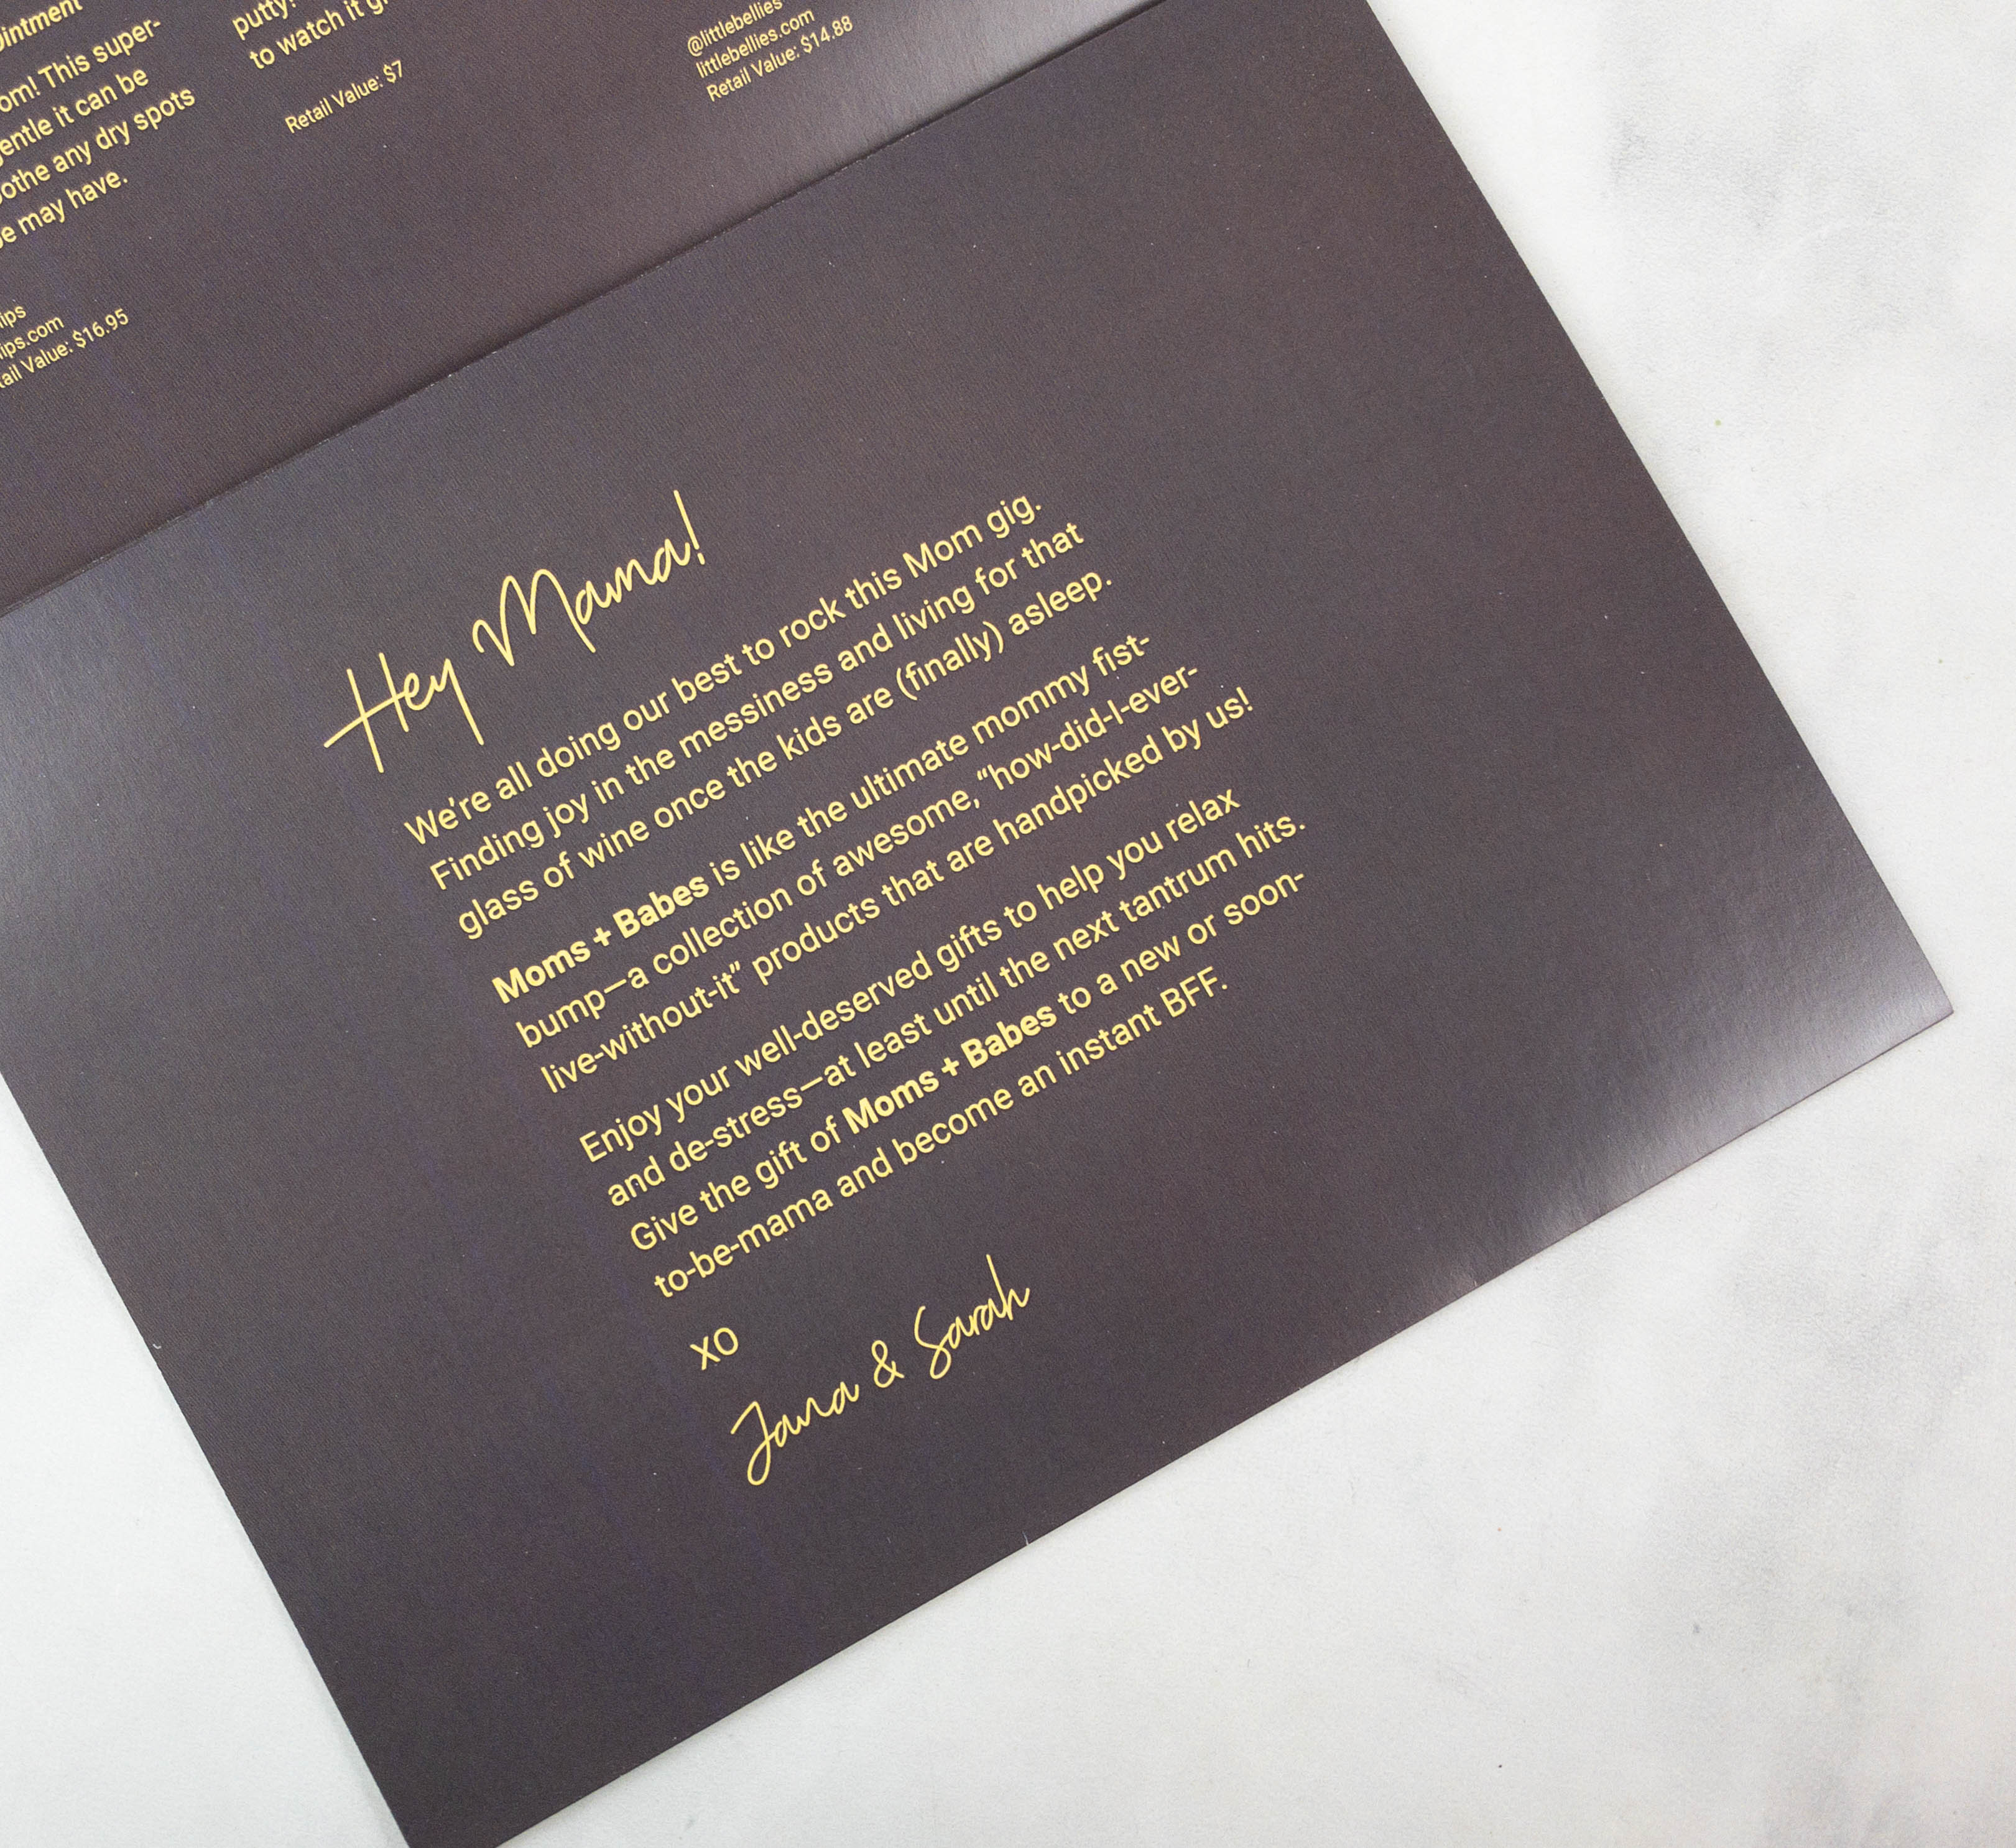 Ointment
This super-
gentle it can be
any dry spots
may have.
Value: $16.95
putty!
to watch it
Retail Value: $7
@littlebellies
littlebellies.com
Retail Value: $14.88
Hey Mama!
We're all doing our best to rock this Mom gig.
Finding joy in the messiness and living for that
glass of wine once the kids are (finally) asleep.
Moms + Babes is like the ultimate mommy fist-
bump—a collection of awesome, “how-did-I-ever-
live-without-it” products that are handpicked by us!
Enjoy your well-deserved gifts to help you relax
and de-stress—at least until the next tantrum hits.
Give the gift of Moms + Babes to a new or soon-
to-be-mama and become an instant BFF.
XO
Jana & Sarah